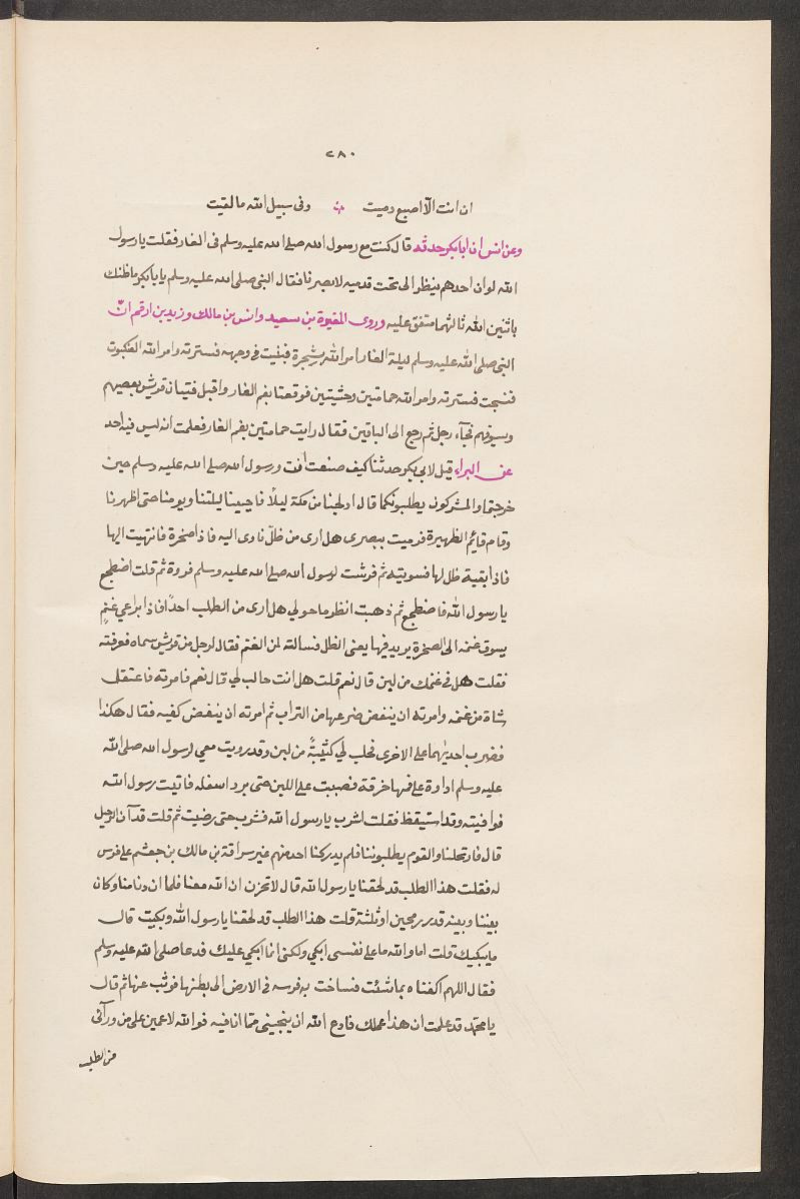 ٢٨٠
ان انت الا اصبع دميت ؞ وفى سبيل الله ما لقيت
وعن انس ان ابا بكر حدثه قال كنت مع رسول الله صلى الله عليه وسلم فى الغار فقلت يا رسول
الله لو ان احدهم ينظر الى تحت قدميه لابصرنا فقال النبى صلى الله عليه وسلم يا بابكر ما ظنك
باثنين الله ثالثهما متفق عليه وروى المغيرة بن سعيد وانس بن مالك وزيد بن ارقم ان
النبى صلى الله عليه وسلم ليلة الغار امر الله بشجرة فنبتت فى وجهه فسترته وامر الله العنكبوت
فنسجت فسترته وامر الله حمامتين وحشيتين فوقعتا بفم الغار واقبل فتيان قريش بعصيهم
وسيوفهم فجآء رجل ثم رجع الى الباقين فقال رايت حمامتين بفم الغار فعلمت انه ليس فيه احد
عن البراء قيل لابى بكر حدثنا كيف صنعت انت ورسول الله صلى الله عليه وسلم حين
خرجتما والمشركون يطلبونكما قال ادلجنا من مكة ليلًا فاحيينا ليلتنا ويومنا حتى اظهرنا
وقام قائم الظهيرة فرميت ببصرى هل ارى من ظل ناوى اليه فاذا صخرة فانتهيت اليها
فاذا بقية ظل لها فسويته ثم فرشت لرسول الله صلى الله عليه وسلم فروة ثم قلت اضطجع
يا رسول الله فاضطجع ثم ذهبت انظر ما حولي هل ارى من الطلب احدًا فاذا براعي غنمٍ
يسوق غنمه الى الصخرة يريد فيها يعنى الظل فسالته لمن الغنم فقال لرجل من قريش سماه فعرفته
فقلت هل فى غنمك من لبن قال نعم قلت هل انت حالب لي قال نعم فامرته فاعتقل
شاة من غنمه وامرته ان ينفض ضرعها من التراب ثم امرته ان ينفض كفيه فقال هكذا
فضرب احديهما على الاخرى فحلب لي كثبةً من لبن وقد رويت معي لرسول الله صلى الله
عليه وسلم اداوة على فمها خرقة فصببت على اللبن حتى برد اسفله فاتيت رسول الله
فوافيته وقد استيقظ فقلت اشرب يا رسول الله فشرب حتى رضيت ثم قلت قد آن الرحيل
قال فارتحلنا والقوم يطلبوننا فلم يدركنا احد منهم غير سراقة بن مالك بن جعشم على فرس
له فقلت هذا الطلب قد لحقنا يا رسول الله قال لا تحزن ان الله معنا فلما ان دنا منا وكان
بيننا وبينه قدر رمحين او ثلثة قلت هذا الطلب قد لحقنا يا رسول الله وبكيت قال
ما يبكيك قلت اما والله ما على نفسى ابكي ولكنى انما ابكي عليك فدعا صلى الله عليه وسلم
فقال اللهم اكفناه بما شئت فساخت به فرسه فى الارض الى بطنها فوثب عنها ثم قال
يا محمّد قد علمت ان هذا عملك فادع الله ان ينجينى مما انا فيه فوالله لاعمين على من ورآئى
من الطلب